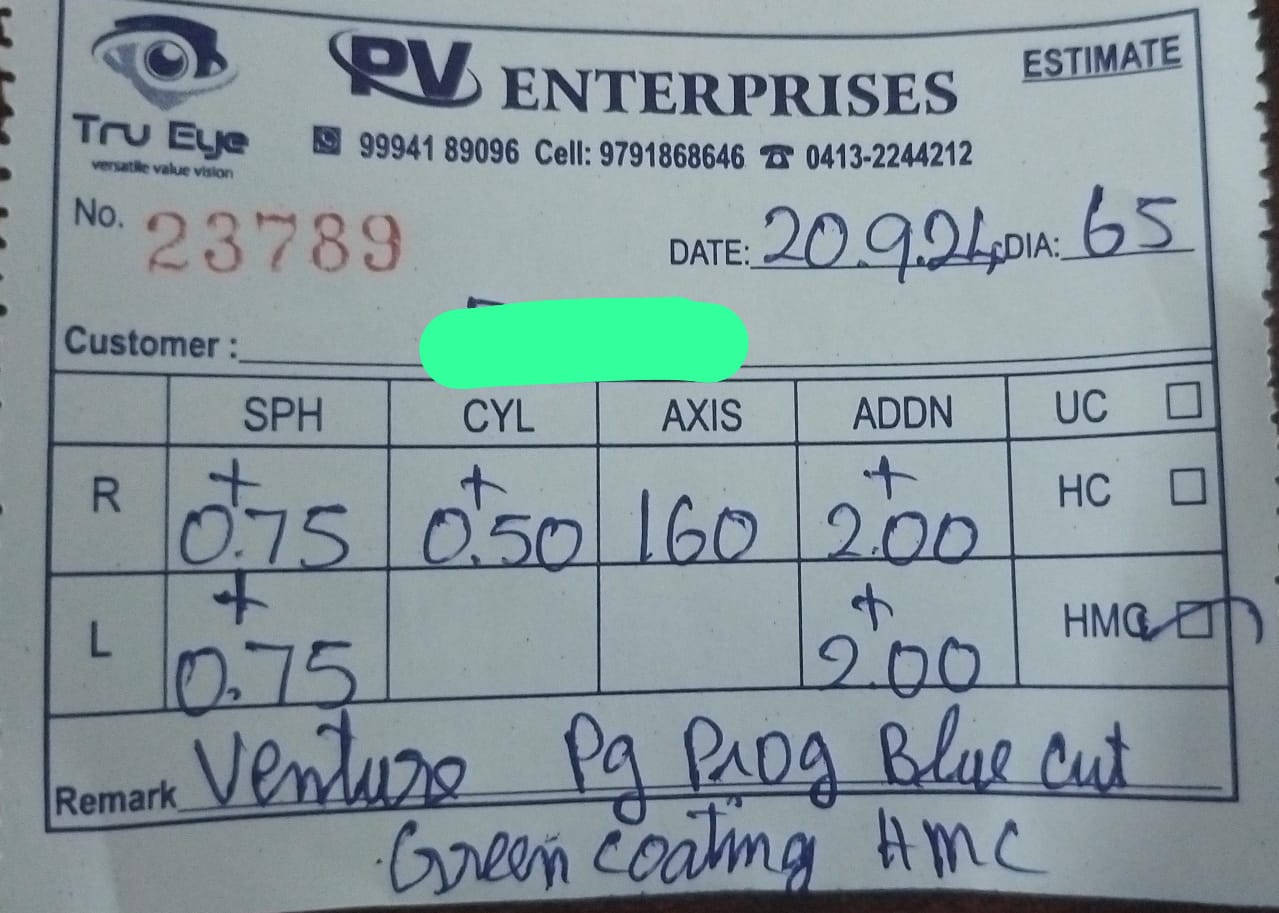 Tru Eye
versatile value vision
PV ENTERPRISES
ESTIMATE
99941 89096 Cell: 9791868646 ☎ 0413-2244212
No. 23789
DATE: 20.9.24 DIA: 65
Customer :
SPH CYL AXIS ADDN UC
R +0.75 +0.50 160 +2.00 HC
L +0.75 +2.00 HMC
Remark Venturo Pg Prog Blue cut
Green coating HMC